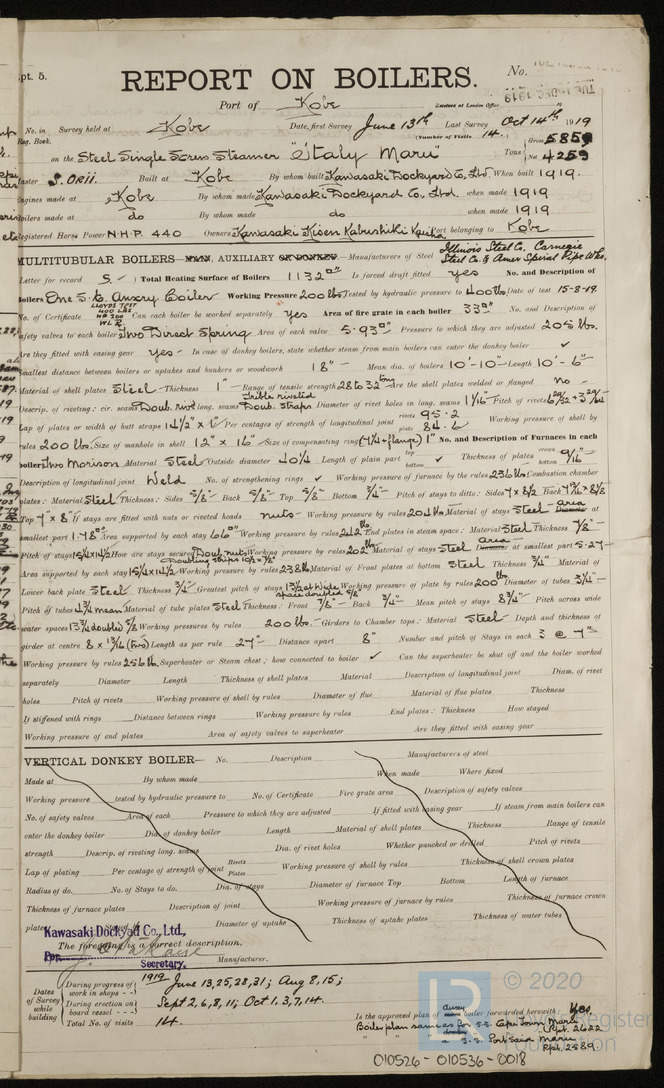 pt. 5.
REPORT ON BOILERS.
No.
TUE. 16 DEC 1919
Port of Kobe
Received at London Office
No. in Survey held at Kobe Date, first Survey June 13th Last Survey Oct 14th 1919
Reg. Book. (Number of Visits 14.) Gross 5859
on the Steel Single Screw Steamer "Italy Maru" Tons Net 4259
Master S. Orii. Built at Kobe By whom built Kawasaki Dockyard Co, Ltd. When built 1919.
Engines made at Kobe By whom made Kawasaki Dockyard Co, Ltd. when made 1919
Boilers made at do By whom made do when made 1919
Registered Horse Power N.H.P. 440 Owners Kawasaki Kisen Kabushiki Kaisha Port belonging to Kobe
MULTITUBULAR BOILERS MAIN, AUXILIARY OR DONKEY.—Manufacturers of Steel Illinois Steel Co. Carnegie Steel Co. & Amer Special Pipe Wks.
Letter for record S Total Heating Surface of Boilers 1132 Is forced draft fitted yes No. and Description of
Boilers One S.E. Auxry Boiler Working Pressure 200 lbs. Tested by hydraulic pressure to 400 lbs. Date of test 15-8-19.
No. of Certificate LLOYDS TEST 400 LBS WP 200 W.L.R. Can each boiler be worked separately yes Area of fire grate in each boiler 33 No. and Description of
safety valves to each boiler Two Direct Spring Area of each valve 5.93 Pressure to which they are adjusted 205 lbs.
Are they fitted with easing gear yes In case of donkey boilers, state whether steam from main boilers can enter the donkey boiler
Smallest distance between boilers or uptakes and bunkers or woodwork 18" Mean dia. of boilers 10'-10" Length 10'-6"
Material of shell plates Steel Thickness 1" Range of tensile strength 28 to 32 tons Are the shell plates welded or flanged no
Descrip. of riveting: cir. seams Doub. rive long. seams Treble riveted Doub. Straps Diameter of rivet holes in long. seams 1 1/16" Pitch of rivets
Lap of plates or width of butt straps 14 1/2" x 1" Per centages of strength of longitudinal joint rivets 95.2 plate 84.6 Working pressure of shell by
rules 200 lbs. Size of manhole in shell 12" x 16" Size of compensating ring No. and Description of Furnaces in each
boiler Two Morison Material Steel Outside diameter 40 1/4 Length of plain part top bottom Thickness of plates crown bottom 9/16"
Description of longitudinal joint Weld No. of strengthening rings Working pressure of furnace by the rules 236 lbs. Combustion chamber
plates: Material Steel Thickness: Sides 5/8" Back 5/8" Top 5/8" Bottom 3/4" Pitch of stays to ditto: Sides 7 x 8 1/2 Back
Top 7" x 8" If stays are fitted with nuts or riveted heads nuts Working pressure by rules 204 lbs. Material of stays Steel Diameter area at
smallest part 1.78" Area supported by each stay 66 Working pressure by rules 242 lbs. End plates in steam space: Material Steel Thickness 7/8"
Pitch of stays 15 1/4 x 14 1/2 How are stays secured Doub. nuts Working pressure by rules 202 lbs. Material of stays Steel Diameter area at smallest part 5.27
Area supported by each stay 15 1/4 x 14 1/2 Working pressure by rules 238 lbs. Material of Front plates at bottom Steel Thickness 3/4" Material of
Lower back plate Steel Thickness 3/4" Greatest pitch of stays Working pressure of plate by rules 200 lbs Diameter of tubes 3 1/4"
Pitch of tubes 4 3/4 mean Material of tube plates Steel Thickness: Front 7/8" Back 3/4" Mean pitch of stays 8 3/4" Pitch across wide
water spaces 13 3/4 doubled 5/8 Working pressures by rules 200 lbs. Girders to Chamber tops: Material Steel Depth and thickness of
girder at centre 8 x 13/16 (two) Length as per rule 27" Distance apart 8" Number and pitch of Stays in each 3 @ 7"
Working pressure by rules 256 lb. Superheater or Steam chest; how connected to boiler Can the superheater be shut off and the boiler worked
separately Diameter Length Thickness of shell plates Material Description of longitudinal joint Diam. of rivet
holes Pitch of rivets Working pressure of shell by rules Diameter of flue Material of flue plates Thickness
If stiffened with rings Distance between rings Working pressure by rules End plates: Thickness How stayed
Working pressure of end plates Area of safety valves to superheater Are they fitted with easing gear
VERTICAL DONKEY BOILER— No. Description Manufacturers of steel
Made at By whom made When made Where fixed
Working pressure tested by hydraulic pressure to No. of Certificate Fire grate area Description of safety valves
No. of safety valves Area of each Pressure to which they are adjusted If fitted with easing gear If steam from main boilers can
enter the donkey boiler Dia. of donkey boiler Length Material of shell plates Thickness Range of tensile
strength Descrip. of riveting long. seams Dia. of rivet holes Whether punched or drilled Pitch of rivets
Lap of plating Per centage of strength of joint Rivets Plates Working pressure of shell by rules Thickness of shell crown plates
Radius of do. No. of Stays to do. Dia. of stays Diameter of furnace Top Bottom Length of furnace
Thickness of furnace plates Description of joint Working pressure of furnace by rules Thickness of furnace crown
plates Diameter of uptake Thickness of uptake plates Thickness of water tubes
Kawasaki Dockyard Co., Ltd.,
The foregoing is a correct description,
Per. Secretary. Manufacturer.
Dates of Survey while building
During progress of work in shops 1919 June 13, 25, 28, 31; Aug 8, 15;
During erection on board vessel Sept 2, 6, 8, 11; Oct 1, 3, 7, 14.
Total No. of visits 14.
Is the approved plan of Auxy boiler forwarded herewith Yes
Boiler plan same as for S.S. Cape Town Maru Rpt. 2622
" " " S.S. Port Said Maru Rpt. 2589.
LR © 2020
Lloyd's Register
Foundation
010526-010536-0018